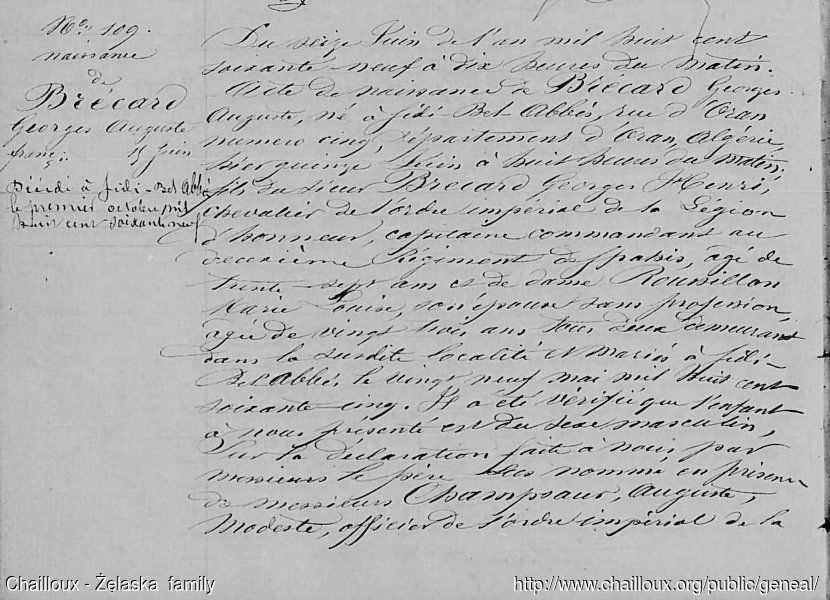 No. 109.
naissance
de
Brécard
Georges Auguste
franç. 15 Juin
Décédé à Sidi-Bel Abbés
le premier octobre mil
huit cent soixante neuf
Du seize Juin de l'an mil huit cent
soixante-neuf à dix heures du matin.
Acte de naissance de Brécard Georges
Auguste, né à Sidi-Bel Abbés, rue d'Oran
numero cinq, département d'Oran, Algérie,
hier quinze Juin à huit heures du matin,
fils du sieur Brécard Georges Henri,
chevalier de l'ordre impérial de la Légion
d'honneur, capitaine commandant au
deuxième Régiment de spahis, âgé de
trente-sept ans et de dame Roussillon
Marie Louise, son épouse sans profession,
agée de vingt trois ans tous deux demeurant
dans la susdite localité et mariés à Sidi-
Bel Abbés, le vingt neuf mai mil huit cent
soixante-cinq. Il a été vérifié que l'enfant
à nous présenté est du sexe masculin,
Sur la déclaration faite à nous par
monsieur le père nommé en présence
de messieurs Champsaur, Auguste,
Modeste, officier de l'ordre impérial de la
Chailloux - Żelaska family
http://www.chailloux.org/public/geneal/